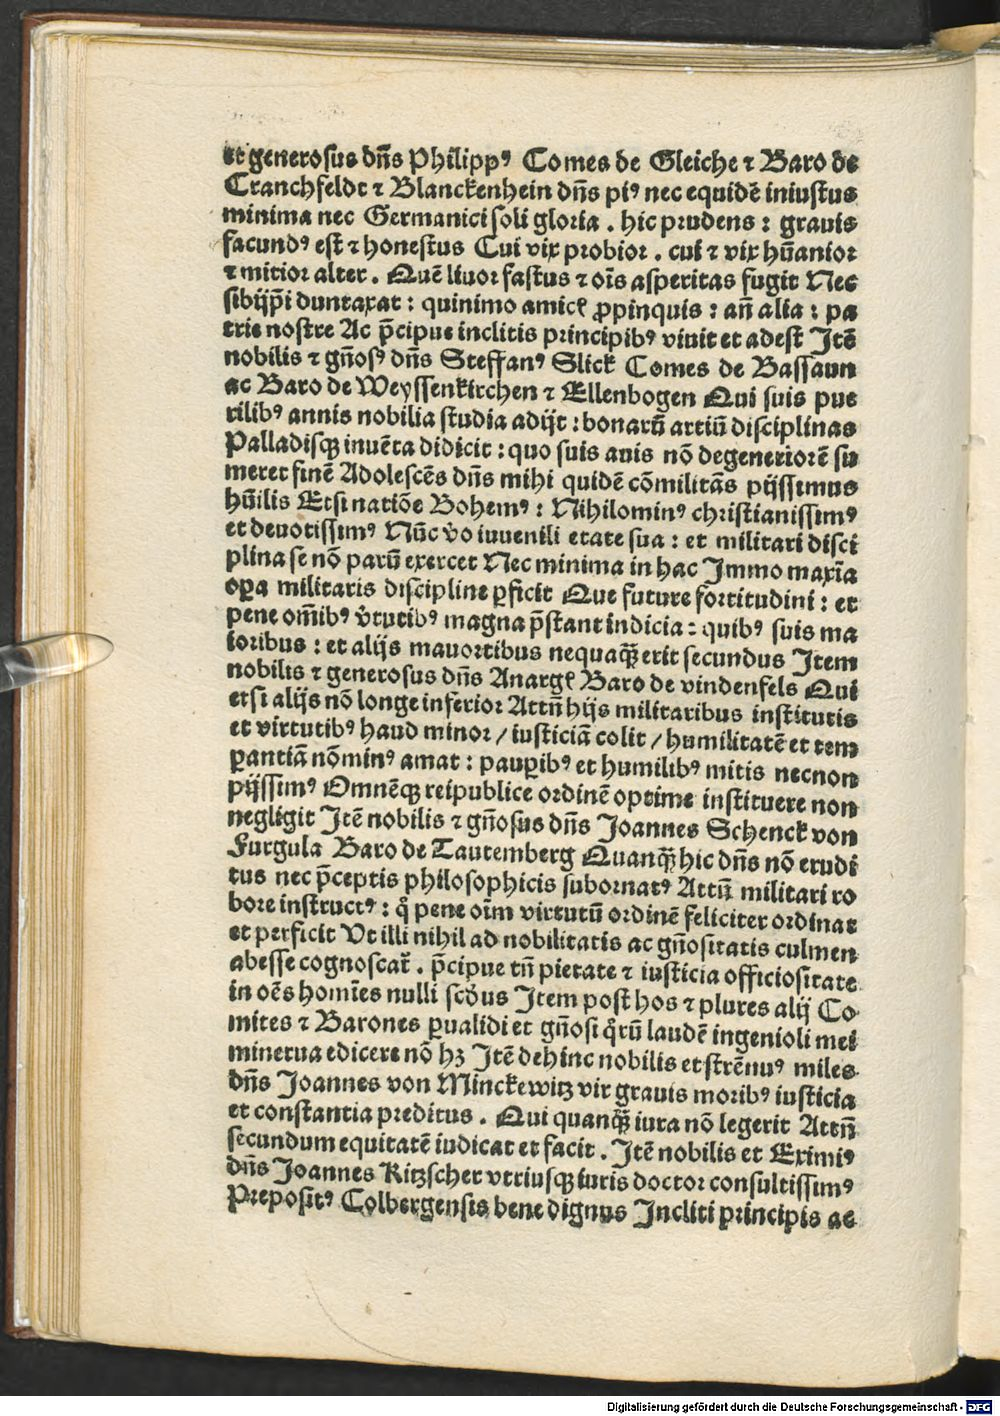 et generosus dn̄s Philippꝰ Comes de Gleiche ⁊ Baro de
Cranchfeldt ⁊ Blanckenhein dn̄s piꝰ nec equidē iniustus
minima nec Germanici soli gloria . hic prudens : grauis
facundꝰ est ⁊ honestus Cui vix probior . cui ⁊ vix hūanior
⁊ mitior alter . Quē liuor fastus ⁊ oīs asperitas fugit Nec
sibijp̄i duntaxat : quinimo amicꝭ ꝓpinquis : an̄ alia : pa
trie nostre Ac p̄cipue inclitis principibꝰ viuit et adest Itē
nobilis ⁊ gn̄osꝰ dn̄s Steffanꝰ Slick Comes de Bassaun
ac Baro de Weyssenkirchen ⁊ Ellenbogen Qui suis pue
rilibꝰ annis nobilia studia adijt : bonarū artiū disciplinas
Palladisqꝫ inuēta didicit : quo suis auis nō degeneriorē su
meret finē Adolescēs dn̄s mihi quidē cōmilitās pijssimus
hūilis Etsi natiōe Bohemꝰ : Nihilominꝰ christianissimꝰ
et deuotissimꝰ Nūc v̄o iuuenili etate sua : et militari disci
plina se nō parū exercet Nec minima in hac Immo maxīa
oꝑa militaris discipline ꝑficit Que future fortitudini : et
pene om̄ibꝰ v̄tutibꝰ magna p̄stant indicia : quibꝰ suis ma
ioribus : et alijs mauortibus nequaqꝫ̄ erit secundus Item
nobilis ⁊ generosus dn̄s Anargꝭ Baro de vindenfels Qui
etsi alijs nō longe inferior Attn̄ hijs militaribus institutis
et virtutibꝰ haud minor / iusticiā colit / humilitatē et tem
ꝑantiā nōminꝰ amat : pauꝑibꝰ et humilibꝰ mitis necnon
pijssimꝰ Omnēqꝫ reipublice ordinē optime instituere non
negligit Itē nobilis ⁊ gn̄osus dn̄s Joannes Schenck von
Furgula Baro de Tautemberg Quanqꝫ̄ hic dn̄s nō erudi
tus nec p̄ceptis philosophicis subornatꝰ Attn̄ militari ro
bore instructꝰ : q̊ pene oīm virtutū ordinē feliciter ordinat
et perficit Vt illi nihil ad nobilitatis ac gn̄ositatis culmen
abesse cognoscat̄ . p̄cipue tn̄ pietate ⁊ iusticia officiositate
in oēs homīes nulli scd̄us Item post hos ⁊ plures alij Co
mites ⁊ Barones ꝑualidi et gn̄osi q̊rū laudē ingenioli mei
minerua edicere nō hꝫ Itē dehinc nobilis et strēnuꝰ miles
dn̄s Joannes von Minckewitz vir grauis moribꝰ iusticia
et constantia preditus . Qui quanqꝫ̄ iura nō legerit Attn̄
secundum equitatē iudicat et facit . Itē nobilis et Eximiꝰ
dn̄s Joannes Kitzscher vtriusqꝫ iuris doctor consultissimꝰ
Prepositꝰ Colbergensis bene dignus Incliti principis ac
Digitalisierung gefördert durch die Deutsche Forschungsgemeinschaft - DFG